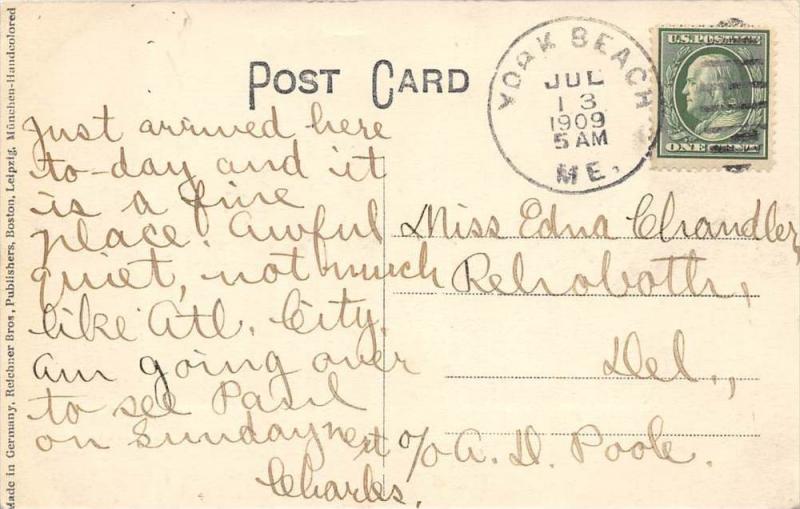 Made in Germany, Reichner Bros, Publishers, Boston, Leipzig, München-Handcolored
POST CARD
YORK BEACH
JUL
13
1909
5 AM
ME.
U.S. POSTAGE
ONE CENT
Just arrived here
to-day and it
is a fine
place. Awful
quiet, not much
like Atl. City.
Am going over
to see Paul
on Sunday next
Charles.
Miss Edna Chandler,
Rehoboth,
Del.,
c/o A. H. Poole.